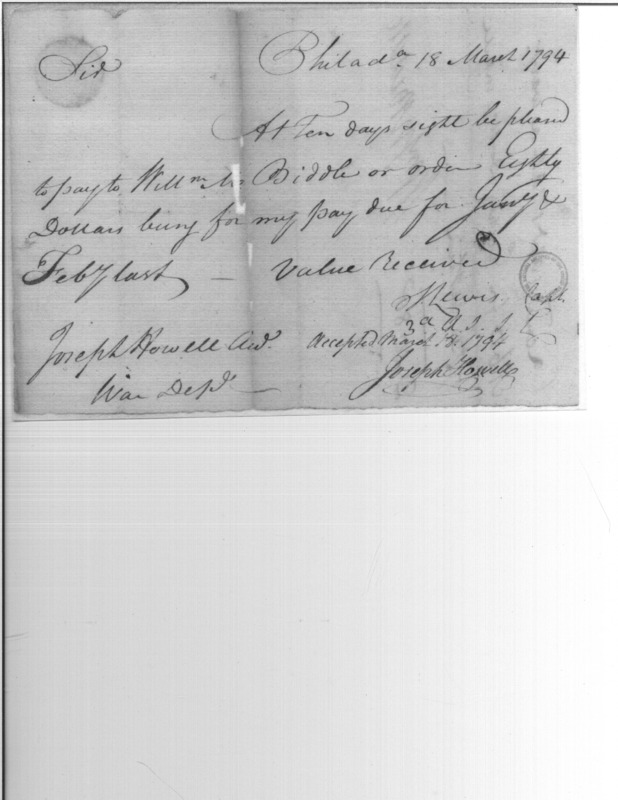 Philada. 18 March 1794
Sir
At Ten days sight be pleased
to pay to Willm M Biddle or order Eighty
Dollars being for my pay due for Jany &
Feby last — Value Received
Lewis Capt.
3d U.S.
Joseph Howell Aud.
Accepted March 18. 1794
War Dept. —
Joseph Howell